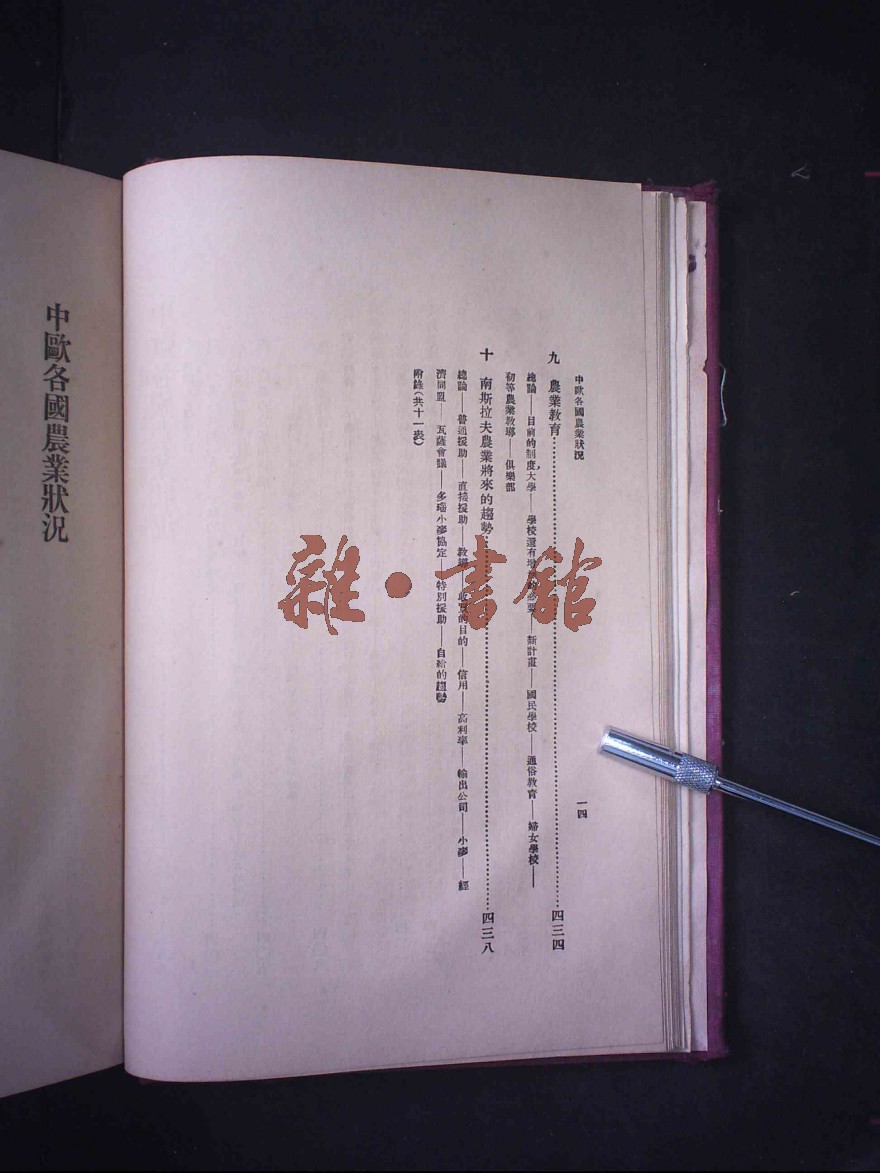 中歐各國農業狀況
一四
九 農業教育……四三四
總論——目前的制度,大學——學校還有增——新計畫——國民學校——通俗教育——婦女學校——
初等農業教鄉——俱樂部
十 南斯拉夫農業將來的趨勢……四三八
總論——普通援助——直接援助——的目的——信用——高利率——輸出公司——小麥——經
濟同盟——瓦薩會議——多瑙小麥協定——特別援助——自給的趨勢
附錄(共十一表)
中歐各國農業狀況
雜·書館